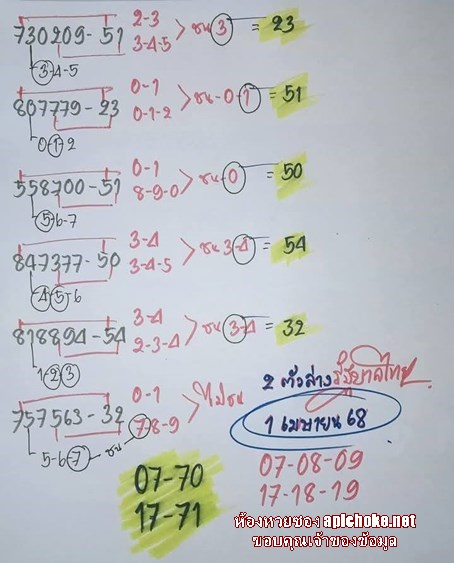 730209-51 2-3 3-4-5 > ชน 3 = 23
3-4-5
807779-23 0-1 0-1-2 > ชน-0-1 = 51
0-1-2
558700-51 0-1 8-9-0 > ชน-0 = 50
5-6-7
847377-50 3-4 3-4-5 > ชน 3-4 = 54
4-5-6
818894-54 3-4 2-3-4 > ชน 3-4 = 32
1-2-3
2 ตัวล่างรัฐบาลไทย
757563-32 0-1 7-8-9 > ไม่ชน
5-6-7 ชน
1 เมษายน 68
07-70
17-71
07-08-09
17-18-19
ห้องหวยซอง apichoke.net
ขอบคุณเจ้าของข้อมูล